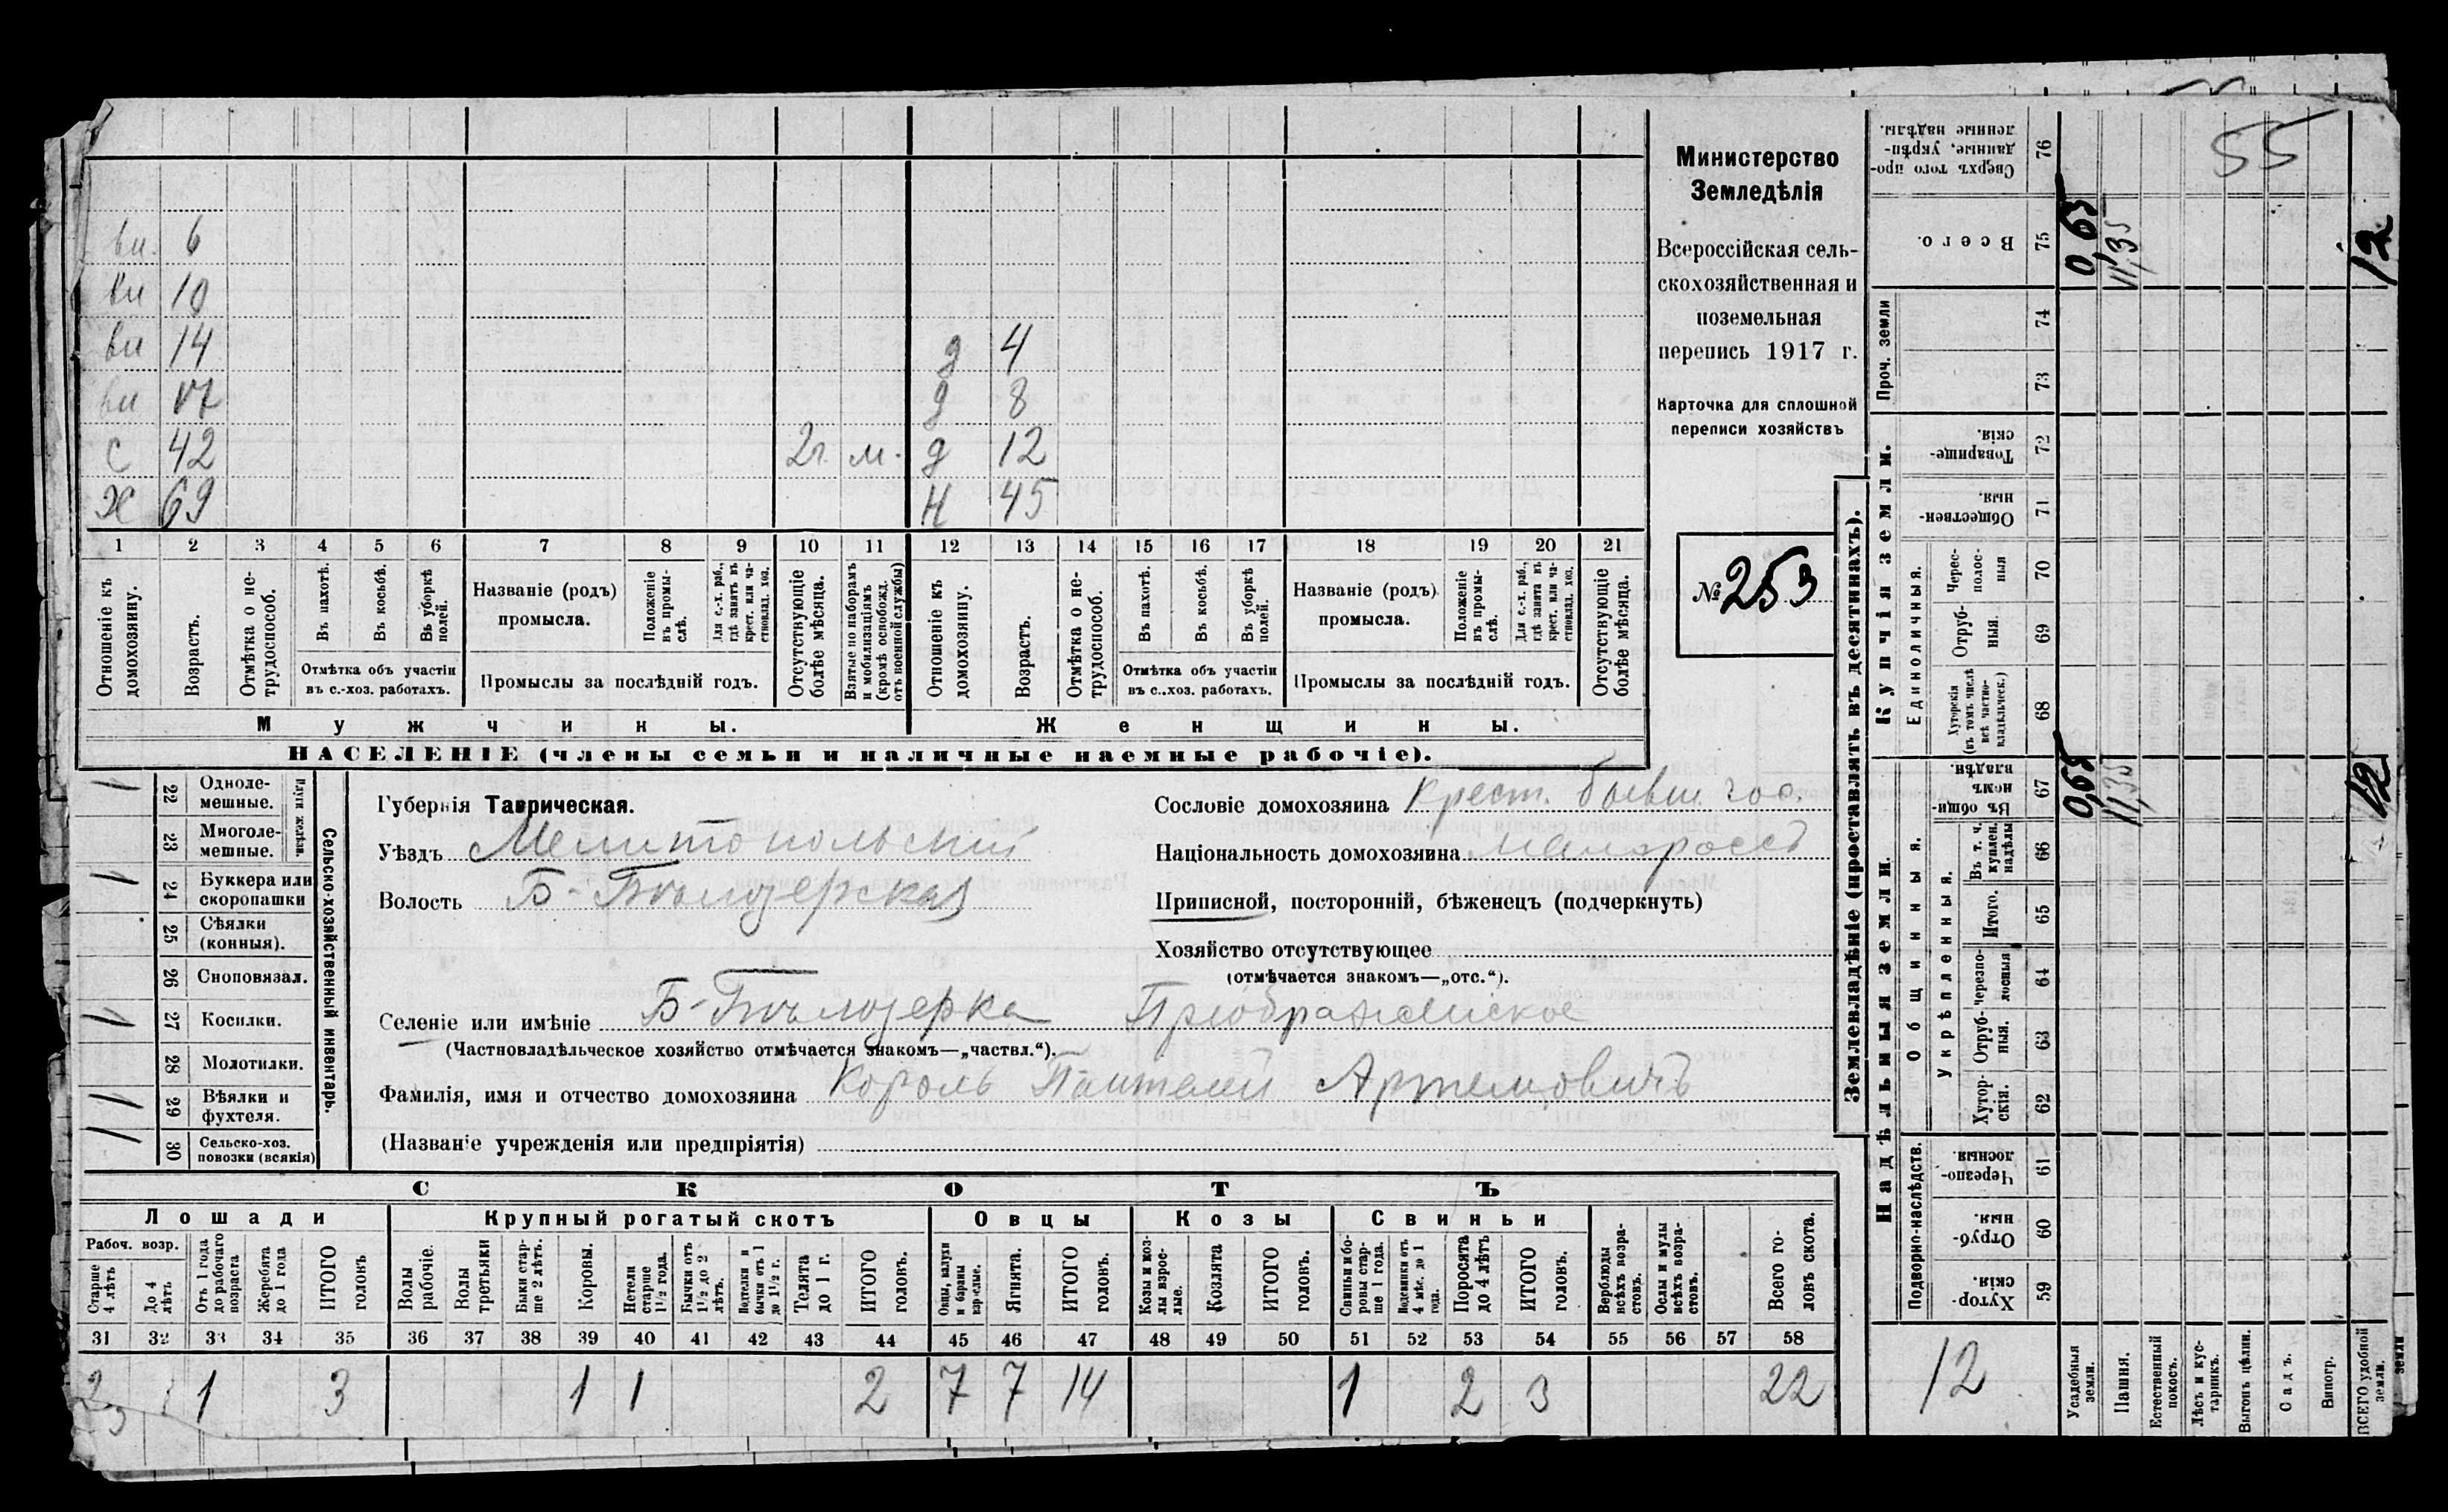 вн. 6
вн 10
вн 14 д 4
вн 17 д 8
с 42 2г. м. д 12
Х 69 Н 45
1 2 3 4 5 6 7 8 9 10 11 12 13 14 15 16 17 18 19 20 21
Отношеніе къ домохозяину.
Возрастъ.
Отмѣтка о не-трудоспособ.
Въ пахотѣ.
Въ косьбѣ.
Въ уборкѣ полей.
Отмѣтка объ участіи въ с.-хоз. работахъ.
Названіе (родъ) промысла.
Положеніе въ промы-слѣ.
Для с.-х. раб., гдѣ занятъ въ крест. или ча-стновлад. хоз.
Промыслы за послѣдній годъ.
Отсутствующіе болѣе мѣсяца.
Взятые по наборамъ и мобилизаціямъ (кромѣ освобожд. отъ военной службы)
Отношеніе къ домохозяину.
Возрастъ.
Отмѣтка о не-трудоспособ.
Въ пахотѣ.
Въ косьбѣ.
Въ уборкѣ полей.
Отмѣтка объ участіи въ с..хоз. работахъ.
Названіе (родъ) промысла.
Положеніе въ промы-слѣ.
Для с.-х. раб., гдѣ занята въ крест. или ча-стновлад. хоз.
Промыслы за послѣдній годъ.
Отсутствующіе болѣе мѣсяца.
Мужчины. Женщины.
НАСЕЛЕНІЕ (члены семьи и наличные наемные рабочіе).
Министерство
Земледѣлія
Всероссійская сель-
скохозяйственная и
поземельная
перепись 1917 г.
Карточка для сплошной
переписи хозяйствъ
№ 253
Сельско-хозяйственный инвентарь.
Плуги желѣзн.
1 22 Одноле-мешные.
23 Многоле-мешные.
1 24 Буккера или скоропашки
25 Сѣялки (конныя).
26 Сноповязал.
1 27 Косилки.
28 Молотилки.
1 29 Вѣялки и фухтеля.
1 30 Сельско-хоз. повозки (всякія)
Губернія Таврическая.
Уѣздъ Мелитопольскій
Волость Б-Бѣлозерская
Селеніе или имѣніе Б-Бѣлозерка Преображенское
(Частновладѣльческое хозяйство отмѣчается знакомъ—„частвл.“).
Фамилія, имя и отчество домохозяина Король Пантелей Артемовичъ
(Названіе учрежденія или предпріятія)
Сословіе домохозяина Крест. бывш. гос.
Національность домохозяина малороссъ
Приписной, посторонній, бѣженецъ (подчеркнуть)
Хозяйство отсутствующее
(отмѣчается знакомъ—„отс.“).
СКОТЪ
Лошади Крупный рогатый скотъ Овцы Козы Свиньи
Рабоч. возр.
Старше 4 лѣтъ
До 4 лѣтъ
Отъ 1 года до рабочаго возраста
Жеребята до 1 года
ИТОГО головъ
Волы рабочіе.
Волы третьяки
Быки стар-ше 2 лѣтъ.
Коровы.
Нетели старше 1½ года.
Бычки отъ 1½ до 2 лѣтъ.
Подтелки и бычки отъ 1 до 1½ г.
Телята до 1 г.
ИТОГО головъ.
Овцы, валухи и бараны взрослые.
Ягнята.
ИТОГО головъ.
Козы и коз-лы взрос-лые.
Козлята
ИТОГО головъ.
Свиньи и бо-ровы стар-ше 1 года.
Подсвинки отъ 4 мѣс. до 1 года.
Поросята до 4 лѣтъ
ИТОГО головъ.
Верблюды всѣхъ возра-стовъ.
Ослы и мулы всѣхъ возра-стовъ.
Всего го-ловъ скота.
31 32 33 34 35 36 37 38 39 40 41 42 43 44 45 46 47 48 49 50 51 52 53 54 55 56 57 58
2 1 3 1 1 2 7 7 14 1 2 3 22
Землевладѣніе (проставлять въ десятинахъ).
Надѣльныя земли. Купчія земли. Проч. земли
Подворно-наслѣдств.
Общинныя.
Укрѣпленныя.
Единоличныя.
Хутор-скія. 59
Отруб-ныя. 60
Черезпо-лосныя. 61
Хутор-скія. 62
Отруб-ныя. 63
Черезпо-лосныя 64
Итого. 65
Въ т. ч. куплен. надѣлы 66
Въ общин-номъ владѣн. 67
Хуторскія (въ томъ числѣ всѣ частно-владѣльческ.) 68
Отруб-ныя. 69
Черес-полос-ныя 70
Обществен-ныя. 71
Товарище-скія. 72
73
74
Всего. 75
Сверхъ того про-данные, укрѣп-ленные надѣлы. 76
12
Усадебныя земли. 0,65 0,65
Пашня. 11,35 11,35
Естественный покосъ.
Лѣсъ и кус-тарникъ.
Выгонъ цѣлин.
Садъ.
Виногр.
ВСЕГО удобной земли. 12 12
земли
55